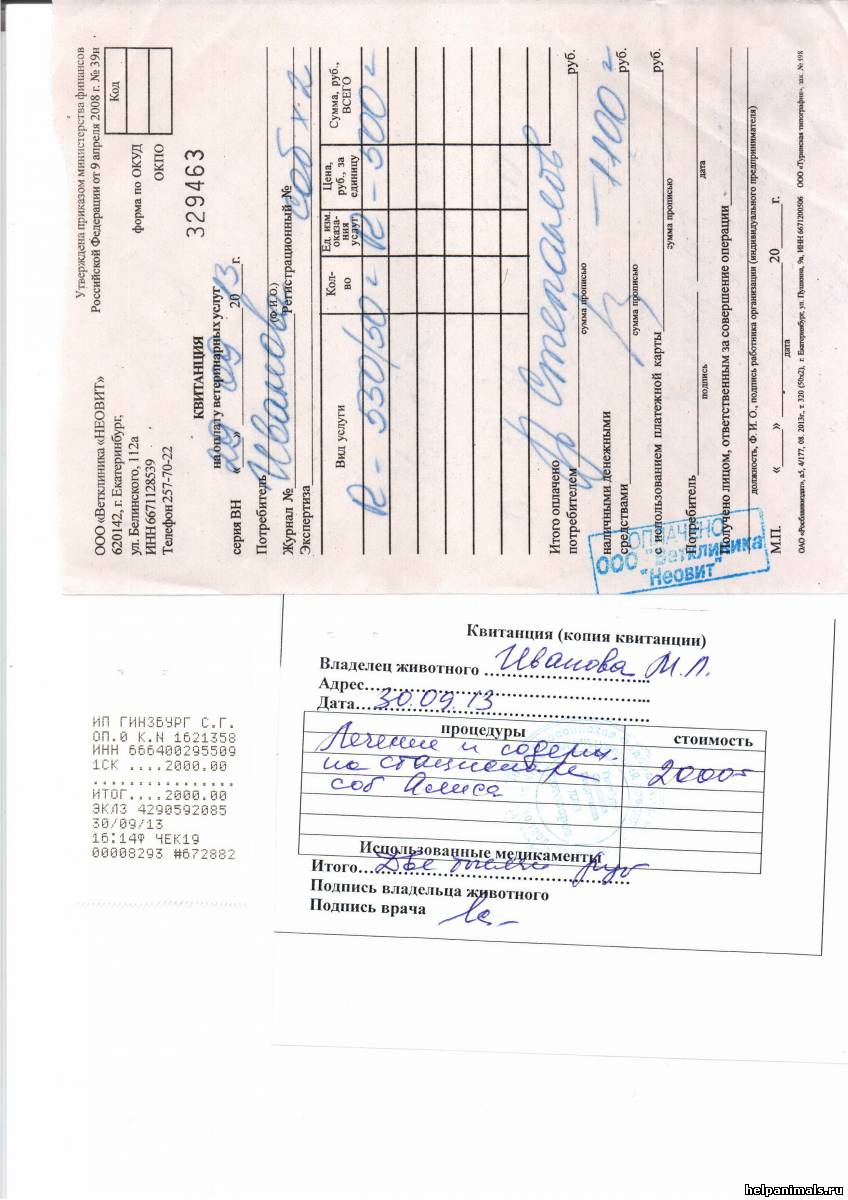 Утверждена приказом министерства финансов
Российской Федерации от 9 апреля 2008 г. № 39н
ООО «Ветклиника «НЕОВИТ»
620142, г. Екатеринбург,
ул. Белинского, 112а
ИНН 6671128539
Телефон 257-70-22
Код
форма по ОКУД
ОКПО
329463
КВИТАНЦИЯ
на оплату ветеринарных услуг
серия ВН « » 20 13 г.
Потребитель Иванов
(Ф.И.О.)
Журнал № Регистрационный № соб х 2
Экспертиза
Вид услуги
Кол-во
Ед. изм. оказания услуг
Цена, руб., за единицу
Сумма, руб., ВСЕГО
R - 530/30 - R - 500 -
Итого оплачено
потребителем руб.
сумма прописью
наличными денежными
средствами - 1100 - руб.
сумма прописью
с использованием платежной карты руб.
сумма прописью
Потребитель
подпись дата
Получено лицом, ответственным за совершение операции
должность, Ф. И. О., подпись работника организации (индивидуального предпринимателя)
М.П. « » 20 г.
дата
ОПЛАЧЕНО
ООО "Ветклиника
"Неовит"
Квитанция (копия квитанции)
Владелец животного Иванова М.Л.
Адрес
Дата 30.09.13
процедуры стоимость
Лечение и содерж.
на стационаре 2000-
соб Алиса
Использованные медикаменты
Итого Две тысячи руб
Подпись владельца животного
Подпись врача
ИП ГИНЗБУРГ С.Г.
ОП.0 К.N 1621358
ИНН 666400295509
1СК ....2000.00
ИТОГ....2000.00
ЭКЛЗ 4290592085
30/09/13
16:14Ф ЧЕК19
00008293 #672882
helpanimals.ru